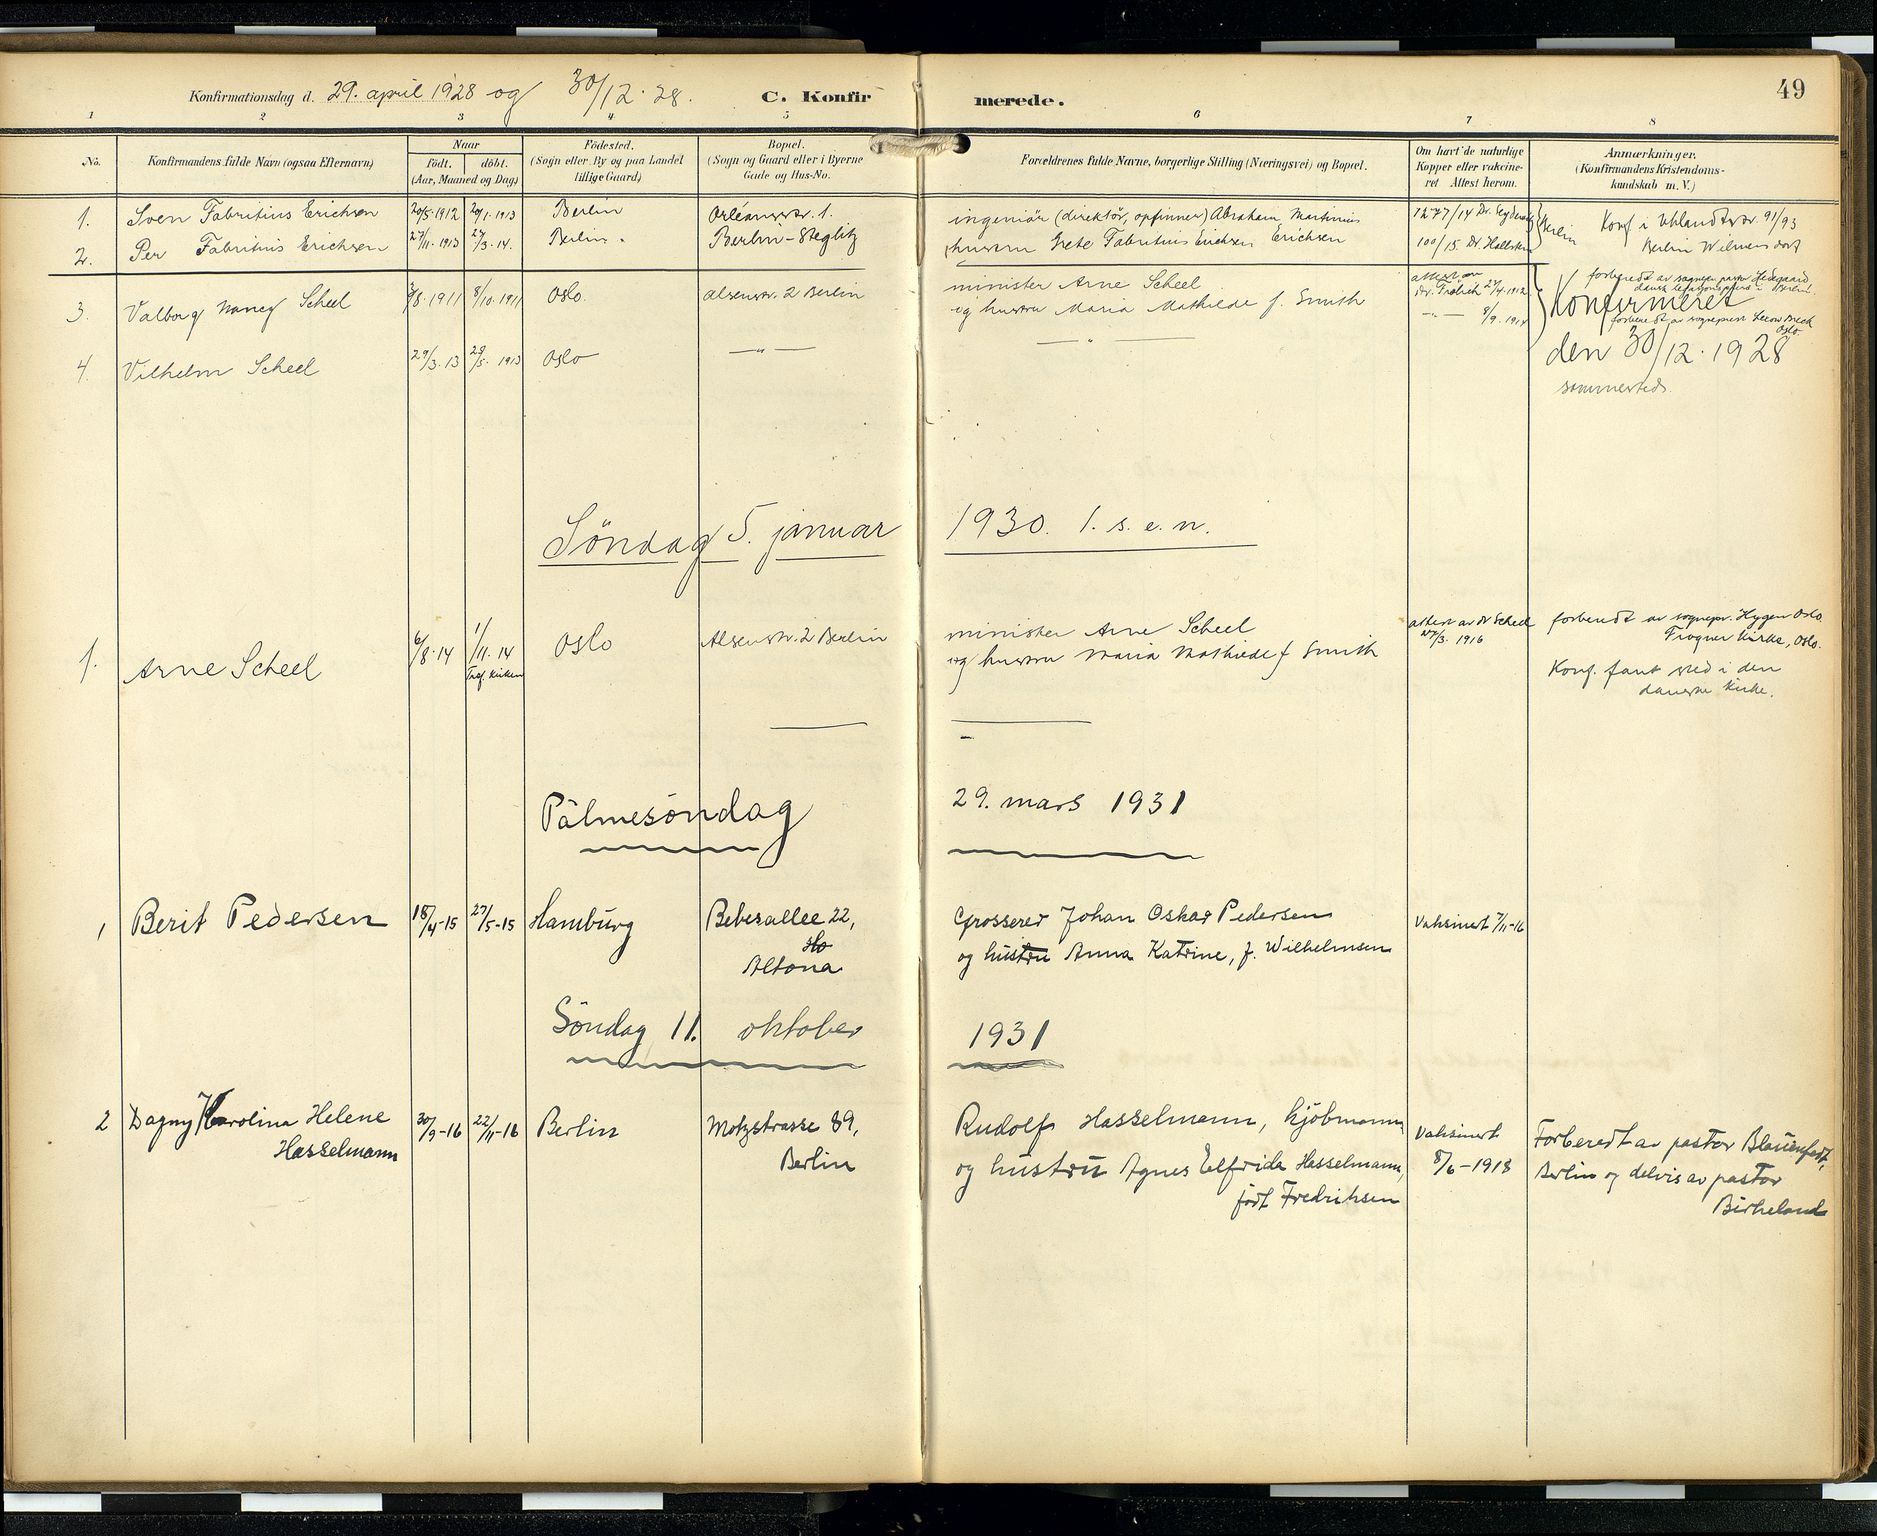 Konfirmationsdag d. 29. april 1928 og 30/12. 28. C. Konfirmerede. 49
1 2 3 4 5 6 7 8
No.
Konfirmandens fulde Navn (ogsaa Efternavn)
Naar
födt. döbt.
(Aar, Maaned og Dag)
Födested.
(Sogn eller By og paa Landet
tillige Gaard)
Bopæl.
(Sogn og Gaard eller i Byerne
Gade og Hus-No.
Forældrenes fulde Navne, borgerlige Stilling (Næringsvei) og Bopæl.
Om havt de naturlige
Kopper eller vakcine-
ret Attest herom.
Anmærkninger.
(Konfirmandens Kristendoms-
kundskab m. V.)
1. Sven Fabritius Erichsen 20/5. 1912 20/1. 1913 Berlin Orléansstr. 1. ingeniör (direktör, opfinner) Abraham Martinius 1277/14 Dr. Konf i Uhlandtstr. 91/93
2. Per Fabritius Erichsen 27/11. 1913 27/3. 14. Berlin. Berlin-Steglitz hustru Grete Fabritius Erichsen Erichsen 100/15 Dr. Berlin Berlin Wilmersdorf
3. Valborg Nancy Scheel /8. 1911 8/10. 1911 Oslo. Alsenstr. 2 Berlin minister Arne Scheel
og hustru Maria Mathilde f. Smith
attest av
Dr. Frölich 29/4. 1912
forberedt av sogneprest Hedegaard
dansk legationsprest i Berlin.
Konfirmeret
4. Vilhelm Scheel 29/3. 13 29/5. 1913 Oslo —"— —"— —"— 8/9. 1914
forberedt av sogneprest
Oslo
den 30/12. 1928
sammesteds.
Söndag 5. januar 1930. 1. s. e. n.
1. Arne Scheel 6/8. 14 1/11. 14 Oslo Alsenstr. 2 Berlin minister Arne Scheel attest av Dr Scheel forberedt av sognepr. Hygen Oslo
kirken og hustru Maria Mathilde f Smith 27/3. 1916 Frogner Kirke, Oslo.
Konf. fant sted i den
danske kirke.
Palmesöndag 29. mars 1931
1 Berit Pedersen 18/4-15 27/5-15 Hamburg Beberallee 22, Grosserer Johan Oskar Pedersen Vaksinert 7/11-16
Altona og hustru Anna Katrine, f. Wilhelmsen
Söndag 11. oktober 1931
2 Dagny Karolina Helene 30/9-16 22/11-16 Berlin Motzstrasse 89, Rudolf Hasselmann, kjöbmann Vaksinert Forberedt av pastor Blauenfeldt,
Hasselmann Berlin og hustru Agnes Elfride Hasselmann, 8/6-1918 Berlin og delvis av pastor
födt Fredriksen Birkeland